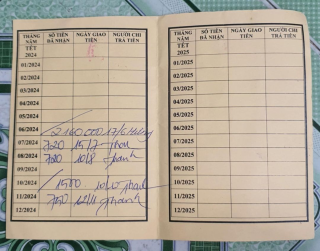 THÁNG NĂM SỐ TIỀN ĐÃ NHẬN NGÀY GIAO TIỀN NGƯỜI CHI TRẢ TIỀN
TẾT 2024
01/2024
02/2024
03/2024
04/2024
05/2024
06/2024 2160 000 17/6
07/2024 720 15/7
08/2024 720 10/8 Thanh
09/2024
10/2024 1500
11/2024 750 Thanh
12/2024
THÁNG NĂM SỐ TIỀN ĐÃ NHẬN NGÀY GIAO TIỀN NGƯỜI CHI TRẢ TIỀN
TẾT 2025
01/2025
02/2025
03/2025
04/2025
05/2025
06/2025
07/2025
08/2025
09/2025
10/2025
11/2025
12/2025